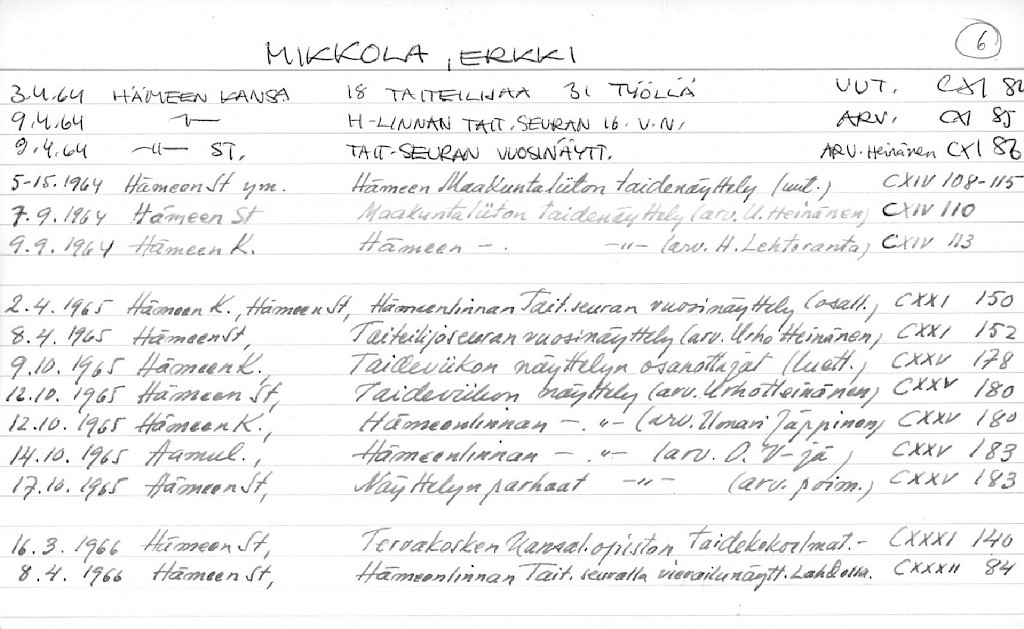 6
MIKKOLA, ERKKI
3.4.64 HÄMEEN KANSA 18 TAITEILIJAA 31 TYÖLLÄ UUT. CXI 82
9.4.64 -"- H-LINNAN TAIT.SEURAN 16. V.N. ARV. CXI 85
9.4.64 -"- ST. TAIT-SEURAN VUOSINÄYTT. ARV. Heinänen CXI 86
5-15.1964 Hämeen St ym. Hämeen Maakuntaliiton taidenäyttely (uut.) CXIV 108-115
7.9.1964 Hämeen St Maakuntaliiton taidenäyttely (arv. U. Heinänen) CXIV 110
9.9.1964 Hämeen K. Hämeen -. -"- (arv. H. Lehtoranta) CXIV 113
2.4.1965 Hämeen K., Hämeen St, Hämeenlinnan Tait.seuran vuosinäyttely (osall.) CXXI 150
8.4.1965 Hämeen St, Taiteilijaseuran vuosinäyttely (arv. Urho Heinänen) CXXI 152
9.10.1965 Hämeen K., Taideviikon näyttelyn osanottajat (luett.) CXXV 178
12.10.1965 Hämeen St, Taideviikon näyttely (arv. Urho Heinänen) CXXV 180
12.10.1965 Hämeen K., Hämeenlinnan -."- (arv. Unari Jäppinen) CXXV 180
14.10.1965 Aamul., Hämeenlinnan -."- (arv. O. V-jä) CXXV 183
17.10.1965 Hämeen St, Näyttelyn parhaat -"- (arv. poim.) CXXV 183
16.3.1966 Hämeen St, Tervakosken Kansal.opiston taidekokoelmat.- CXXXI 140
8.4.1966 Hämeen St, Hämeenlinnan Tait.seuralla vierailunäytt. Lahdessa. CXXXII 84